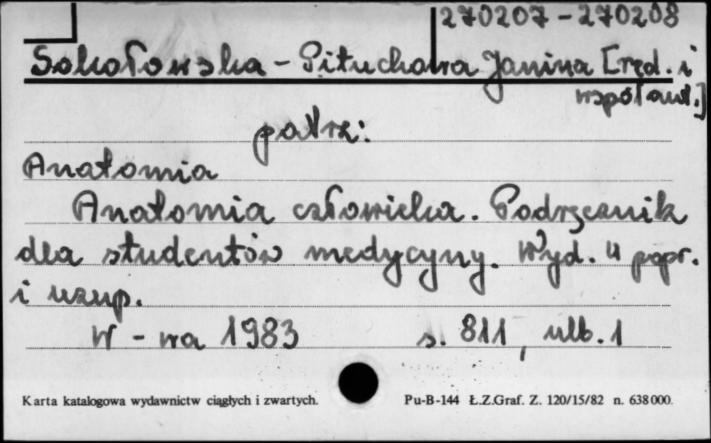 270207-270208
Sokołowska-Pituchowa Janina [red. i
współaut.]
patrz:
Anatomia
Anatomia człowieka. Podręcznik
dla studentów medycyny. Wyd. 4 popr.
i uzup.
W-wa 1983 s. 811, nlb. 1
Karta katalogowa wydawnictw ciągłych i zwartych. Pu-B-144 Ł.Z.Graf. Z. 120/15/82 n. 638000.